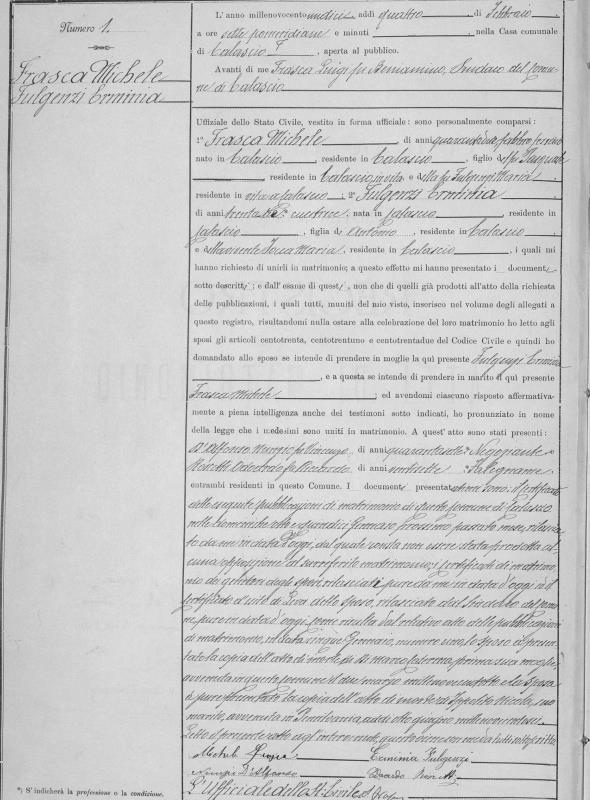 Numero 1.
Frasca Michele
Fulgenzi Erminia
L'anno millenovecento undici, addì quattro di Febbraio,
a ore sette pomeridiane e minuti , nella Casa comunale
di Calascio , aperta al pubblico.
Avanti di me Frasca Luigi fu Beniamino, Sindaco del Comu-
ne di Calascio
Uffiziale dello Stato Civile, vestito in forma ufficiale: sono personalmente comparsi:
1° Frasca Michele , di anni quarantadue, fabbro ferraio
nato in Calascio , residente in Calascio , figlio di fu Pasquale
, residente in Calascio in vita e della fu Fulgenzi Maria ,
residente in vita a Calascio ; 2° Fulgenzi Erminia ,
di anni trenta , cucitrice, nata in Calascio , residente in
Calascio , figlia di Antonio , residente in Calascio ,
e da Maria , residente in Calascio , i quali mi
hanno richiesto di unirli in matrimonio; a questo effetto mi hanno presentato i document
sotto descritti; e dall'esame di quest , non che di quelli già prodotti all'atto della richiesta
delle pubblicazioni, i quali tutti, muniti del mio visto, inserisco nel volume degli allegati a
questo registro, risultandomi nulla ostare alla celebrazione del loro matrimonio ho letto agli
sposi gli articoli centotrenta, centotrentuno e centotrentadue del Codice Civile e quindi ho
domandato allo sposo se intende di prendere in moglie la quì presente Fulgenzi Erminia
, e a questa se intende di prendere in marito il quì presente
Frasca Michele ; ed avendomi ciascuno risposto affermativa-
mente a piena intelligenza anche dei testimoni sotto indicati, ho pronunziato in nome
della legge che i medesimi sono uniti in matrimonio. A quest'atto sono stati presenti:
D'Alfonso Nunzio fu Vincenzo, di anni quarantasette, Negoziante
e fu Riccardo, di anni , Falegname
entrambi residenti in questo Comune. I document presentatimi sono: il certificato
delle eseguite pubblicazioni di matrimonio di questo Comune di Calascio
nelle domeniche otto e quindici Gennaio prossimo passato mese, rilascia-
to da me in data d'oggi, dal quale consta non essere stata prodotta al-
cuna opposizione al surriferito matrimonio; i certificati di matrimo-
nio dei genitori degli sposi, rilasciati pure da me in data d'oggi; il
certificato d'esito di Leva dello sposo, rilasciato dal Sindaco del Comu-
ne, pure in data d'oggi, come risulta dal relativo atto delle pubblicazioni
di matrimonio, in data cinque Gennaio, numero uno, lo sposo à presen-
tato la copia dell'atto di morte di , prima sua moglie,
avvenuta in questo Comune il due marzo millenovecento e la sposa
à pure presentato la copia dell'atto di morte di Ippolito Nicola, suo
marito, avvenuta in Pensilvania, addì otto giugno millenovecento
Letto il presente atto agl'intervenuti, questi lo hanno meco tutti sottoscritto.
Michele Frasca Erminia Fulgenzi
Nunzio D'Alfonso
L'Ufficiale dello St. Civile
*) S'indicherà la professione o la condizione.